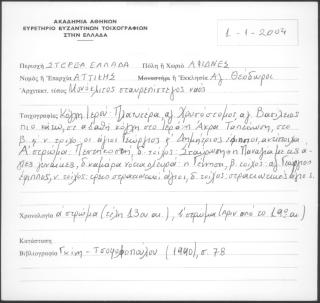 ΑΚΑΔΗΜΙΑ ΑΘΗΝΩΝ
ΕΥΡΕΤΗΡΙΟ ΒΥΖΑΝΤΙΝΩΝ ΤΟΙΧΟΓΡΑΦΙΩΝ
ΣΤΗΝ ΕΛΛΑΔΑ
1-1-2004
Περιοχή ΣΤΕΡΕΑ ΕΛΛΑΔΑ Πόλη ή Χωριό ΑΦΙΔΝΕΣ
Νομός ή Ἐπαρχία ΑΤΤΙΚΗΣ Μοναστήρι ἤ Ἐκκλησία Αγ. Θεόδωροι
Ἀρχιτεκτ. τύπος Μονόκλιτος σταυρεπίστεγος ναός
Τοιχογραφίες Κόγχη Ιερού: Πλατυτέρα, αγ. Χρυσόστομος, αγ. Βασίλειος
πιο κάτω, στ αβαθή κόγχη στο Ιερό: η Άκρα Ταπείνωση, στο
Β. τοίχο: οι άγιοι Γεώργιος Δημήτριος έφιπποι, αντίστοιχα
Α' στρώμα: Πεντηκοστή, δ. τοίχος: Σταύρωση Παναγία
γυναίκες, δ. καμάρα νότια: η Γέννηση, β. τοίχος: αγ. Γεώργιος
έφιππος, ν. τοίχος: στρατιωτικοί άγιοι, δ. τοίχος: στρατιωτικός άγιος.
Χρονολογία α' στρώμα (τέλη 13ου αι.), β' στρώμα (πριν από το 19ο αι.)
Κατάσταση
Βιβλιογραφία Γκίνη - Τσοφοπούλου (1990), σ. 78